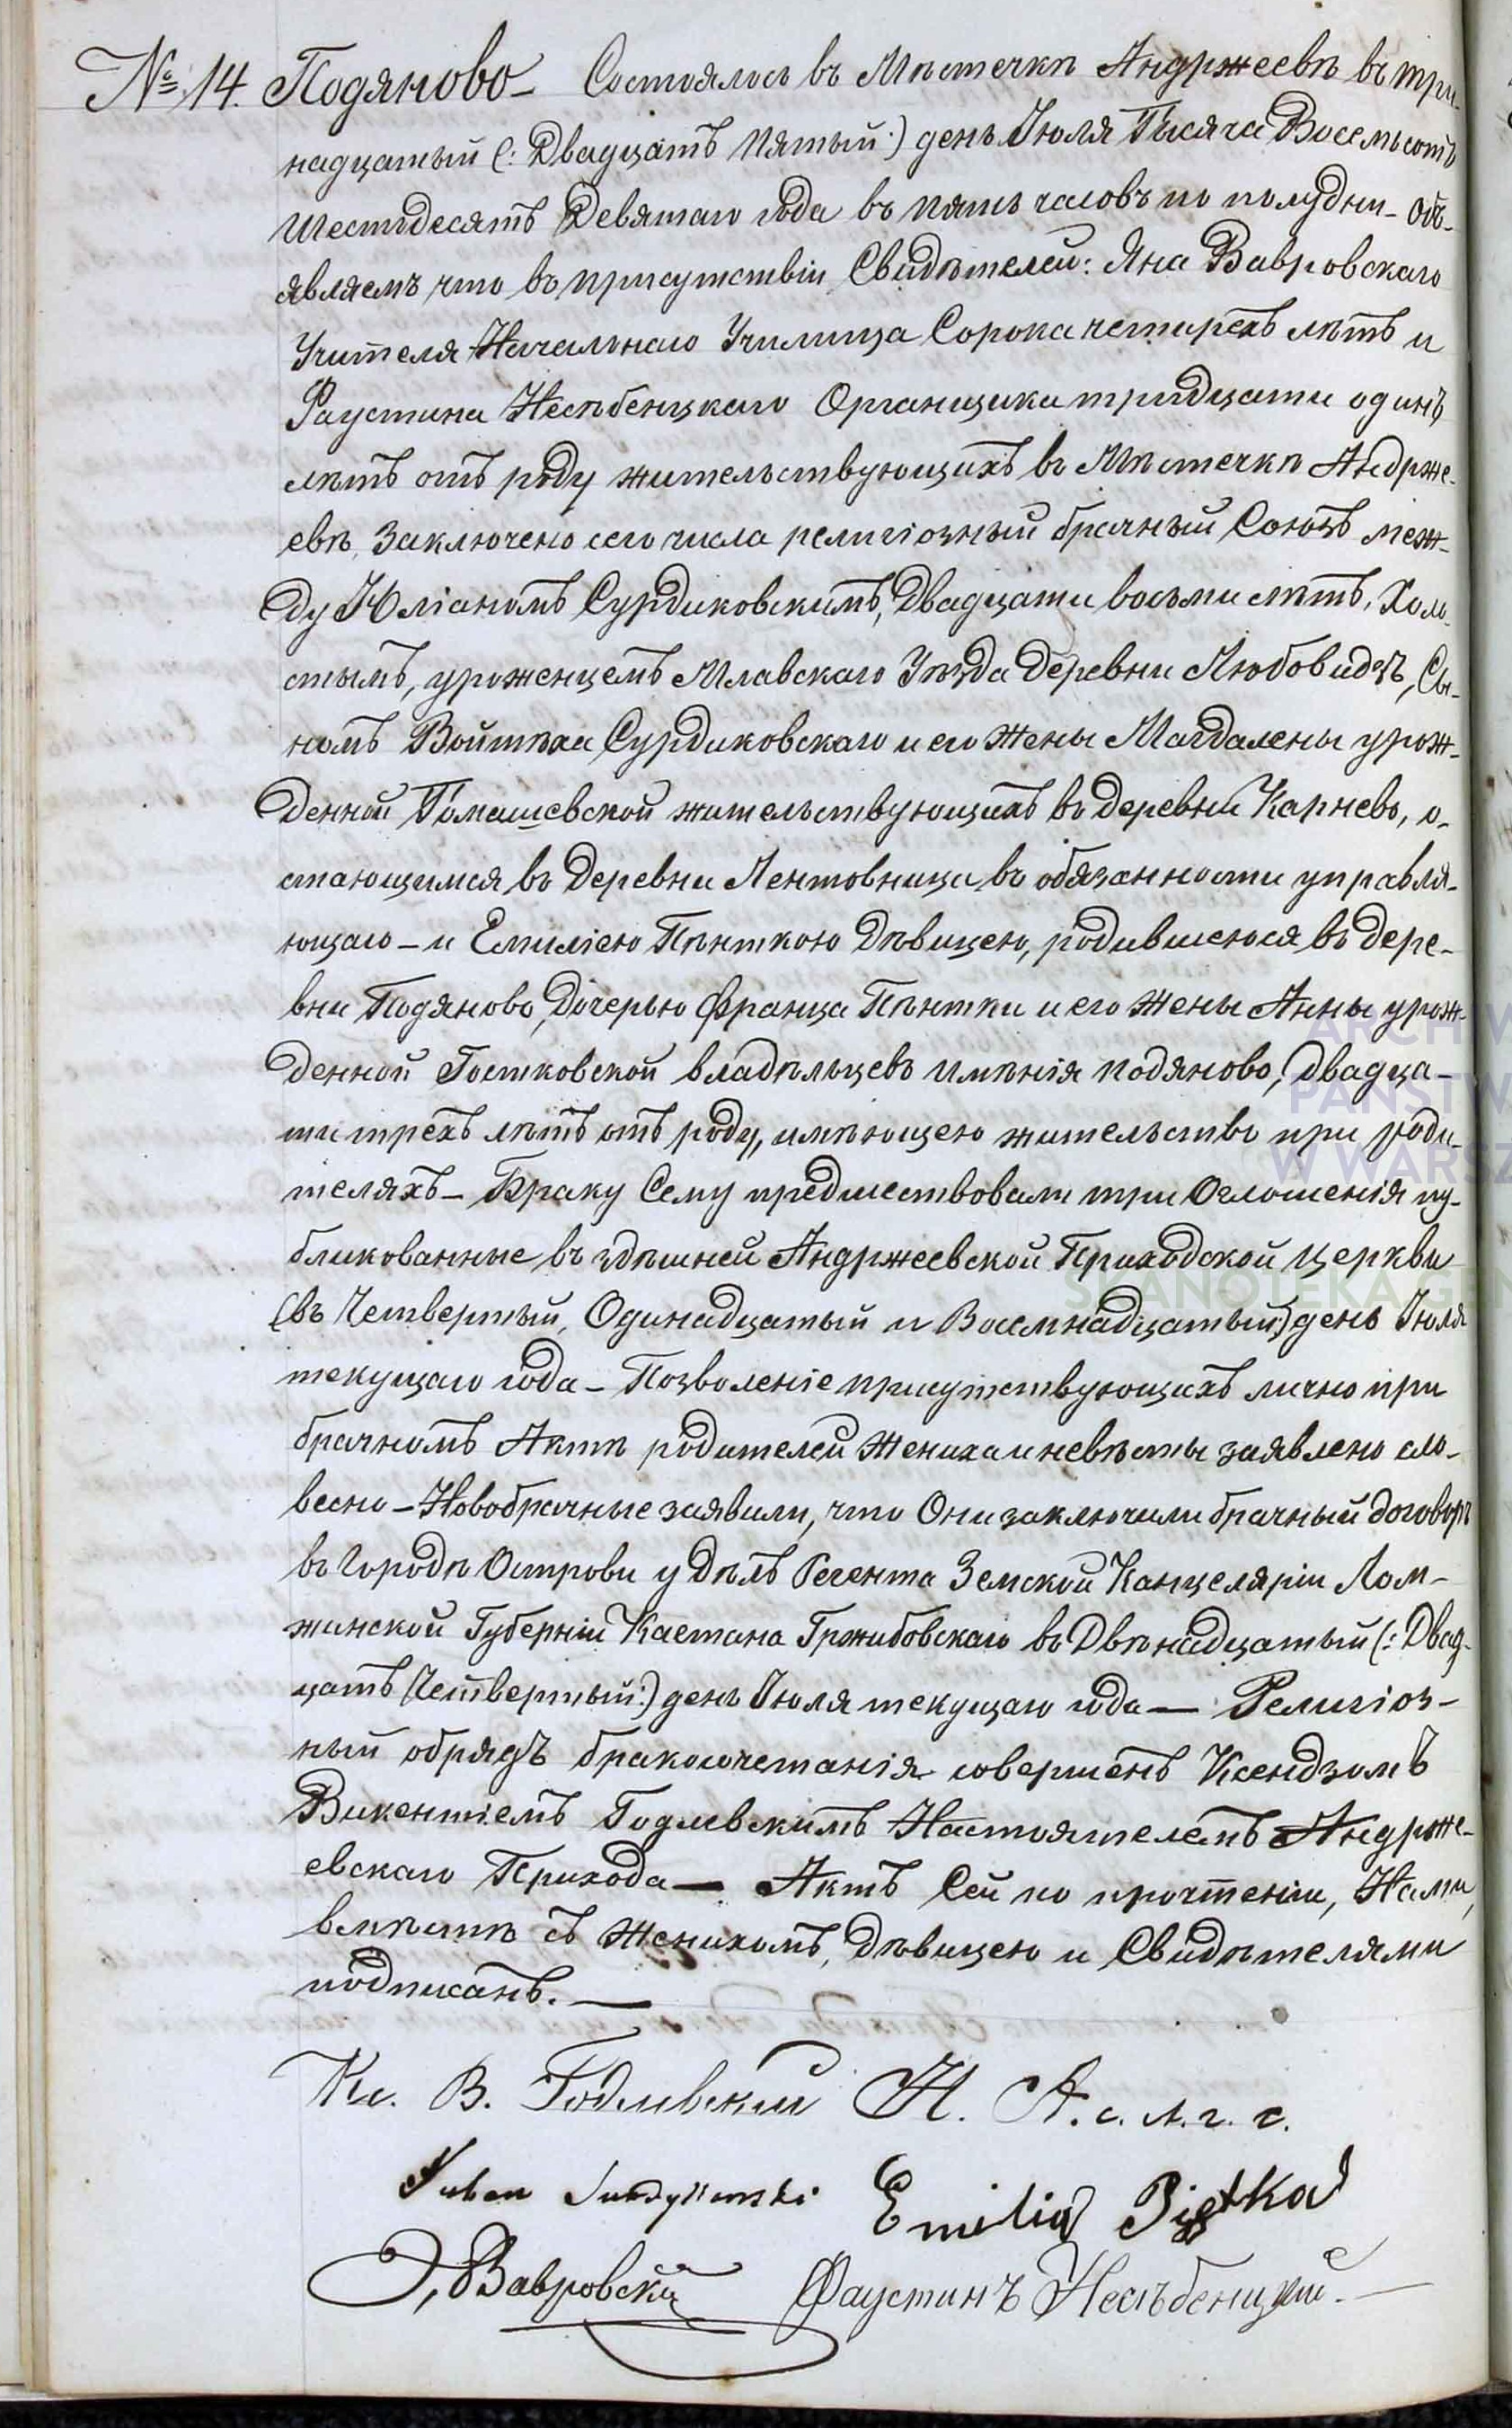 № 14. Подяново — Состоялось въ Мѣстечкѣ Андржеевѣ въ три-
надцатый (: Двадцать пятый :) день Іюля Тысяча Восемьсотъ
Шестьдесятъ Девятаго года въ пять часовъ по полудни — Объ-
являемъ что въ присутствіи Свидѣтелей: Яна Вавровскаго
Учителя Начальнаго Училища Сорока четырехъ лѣтъ и
Фаустина Несъбенцкаго Органщика тридцати одинъ
лѣтъ отъ роду жительствующихъ въ Мѣстечкѣ Андрже-
евѣ, Заключено сего числа религіозный брачный Союзъ меж-
ду Юліаномъ Сурдиковскимъ, Двадцати восьми лѣтъ, Холо-
стымъ, уроженцемъ Млавскаго Уѣзда Деревни Любовидзъ, Сы-
номъ Войтѣха Сурдиковскаго и его Жены Магдалены урож-
денной Томашевской жительствующихъ въ Деревни Карнево, о-
стающимся въ Деревни Лентовница въ обязанности управля-
ющаго — и Емиліею Пѣнткою Дѣвицею, родившеюся въ Дере-
вни Подяново, Дочерью Франца Пѣнтки и его Жены Анны урож-
денной Гостковской владѣльцевъ имѣнія Подяново, двадца-
ти трехъ лѣтъ отъ роду, имѣющею жительство при роди-
теляхъ — Браку Сему предшествовали три Оглошенія пу-
бликованные въ здѣшней Андржеевской Приходской Церкви
(въ Четвертый, Одинадцатый и Восемнадцатый) день Іюля
текущаго года — Позволеніе присутствующихъ лично при
брачномъ Актѣ родителей Жениха и невѣсты заявлено сло-
весно — Новобрачные заявили, что Они заключили брачный договоръ
въ Городѣ Острови у Дѣлъ Регента Земской Канцеляріи Лом-
жинской Губерніи Каетана Гржибовскаго въ Двѣнадцатый (: Двад-
цать Четвертый :) день Іюля текущаго года — Религіоз-
ный обрядъ бракосочетанія совершенъ Ксендзомъ
Викентіемъ Годлевскимъ Настоятелемъ Андрже-
евскаго Прихода — Актъ Сей по прочтеніи, Нами,
вмѣстѣ съ Женихомъ, Дѣвицею и Свидѣтелями
подписанъ. —
Кс. В. Годлевскій Н. А. с. л. г. с.
Julian Surdykowski Emilia Piętka
Вавровскій Фаустинъ Несъбенцкій. —
ARCHIW
PAŃSTW
W WARSZ
SKANOTEKA.GE